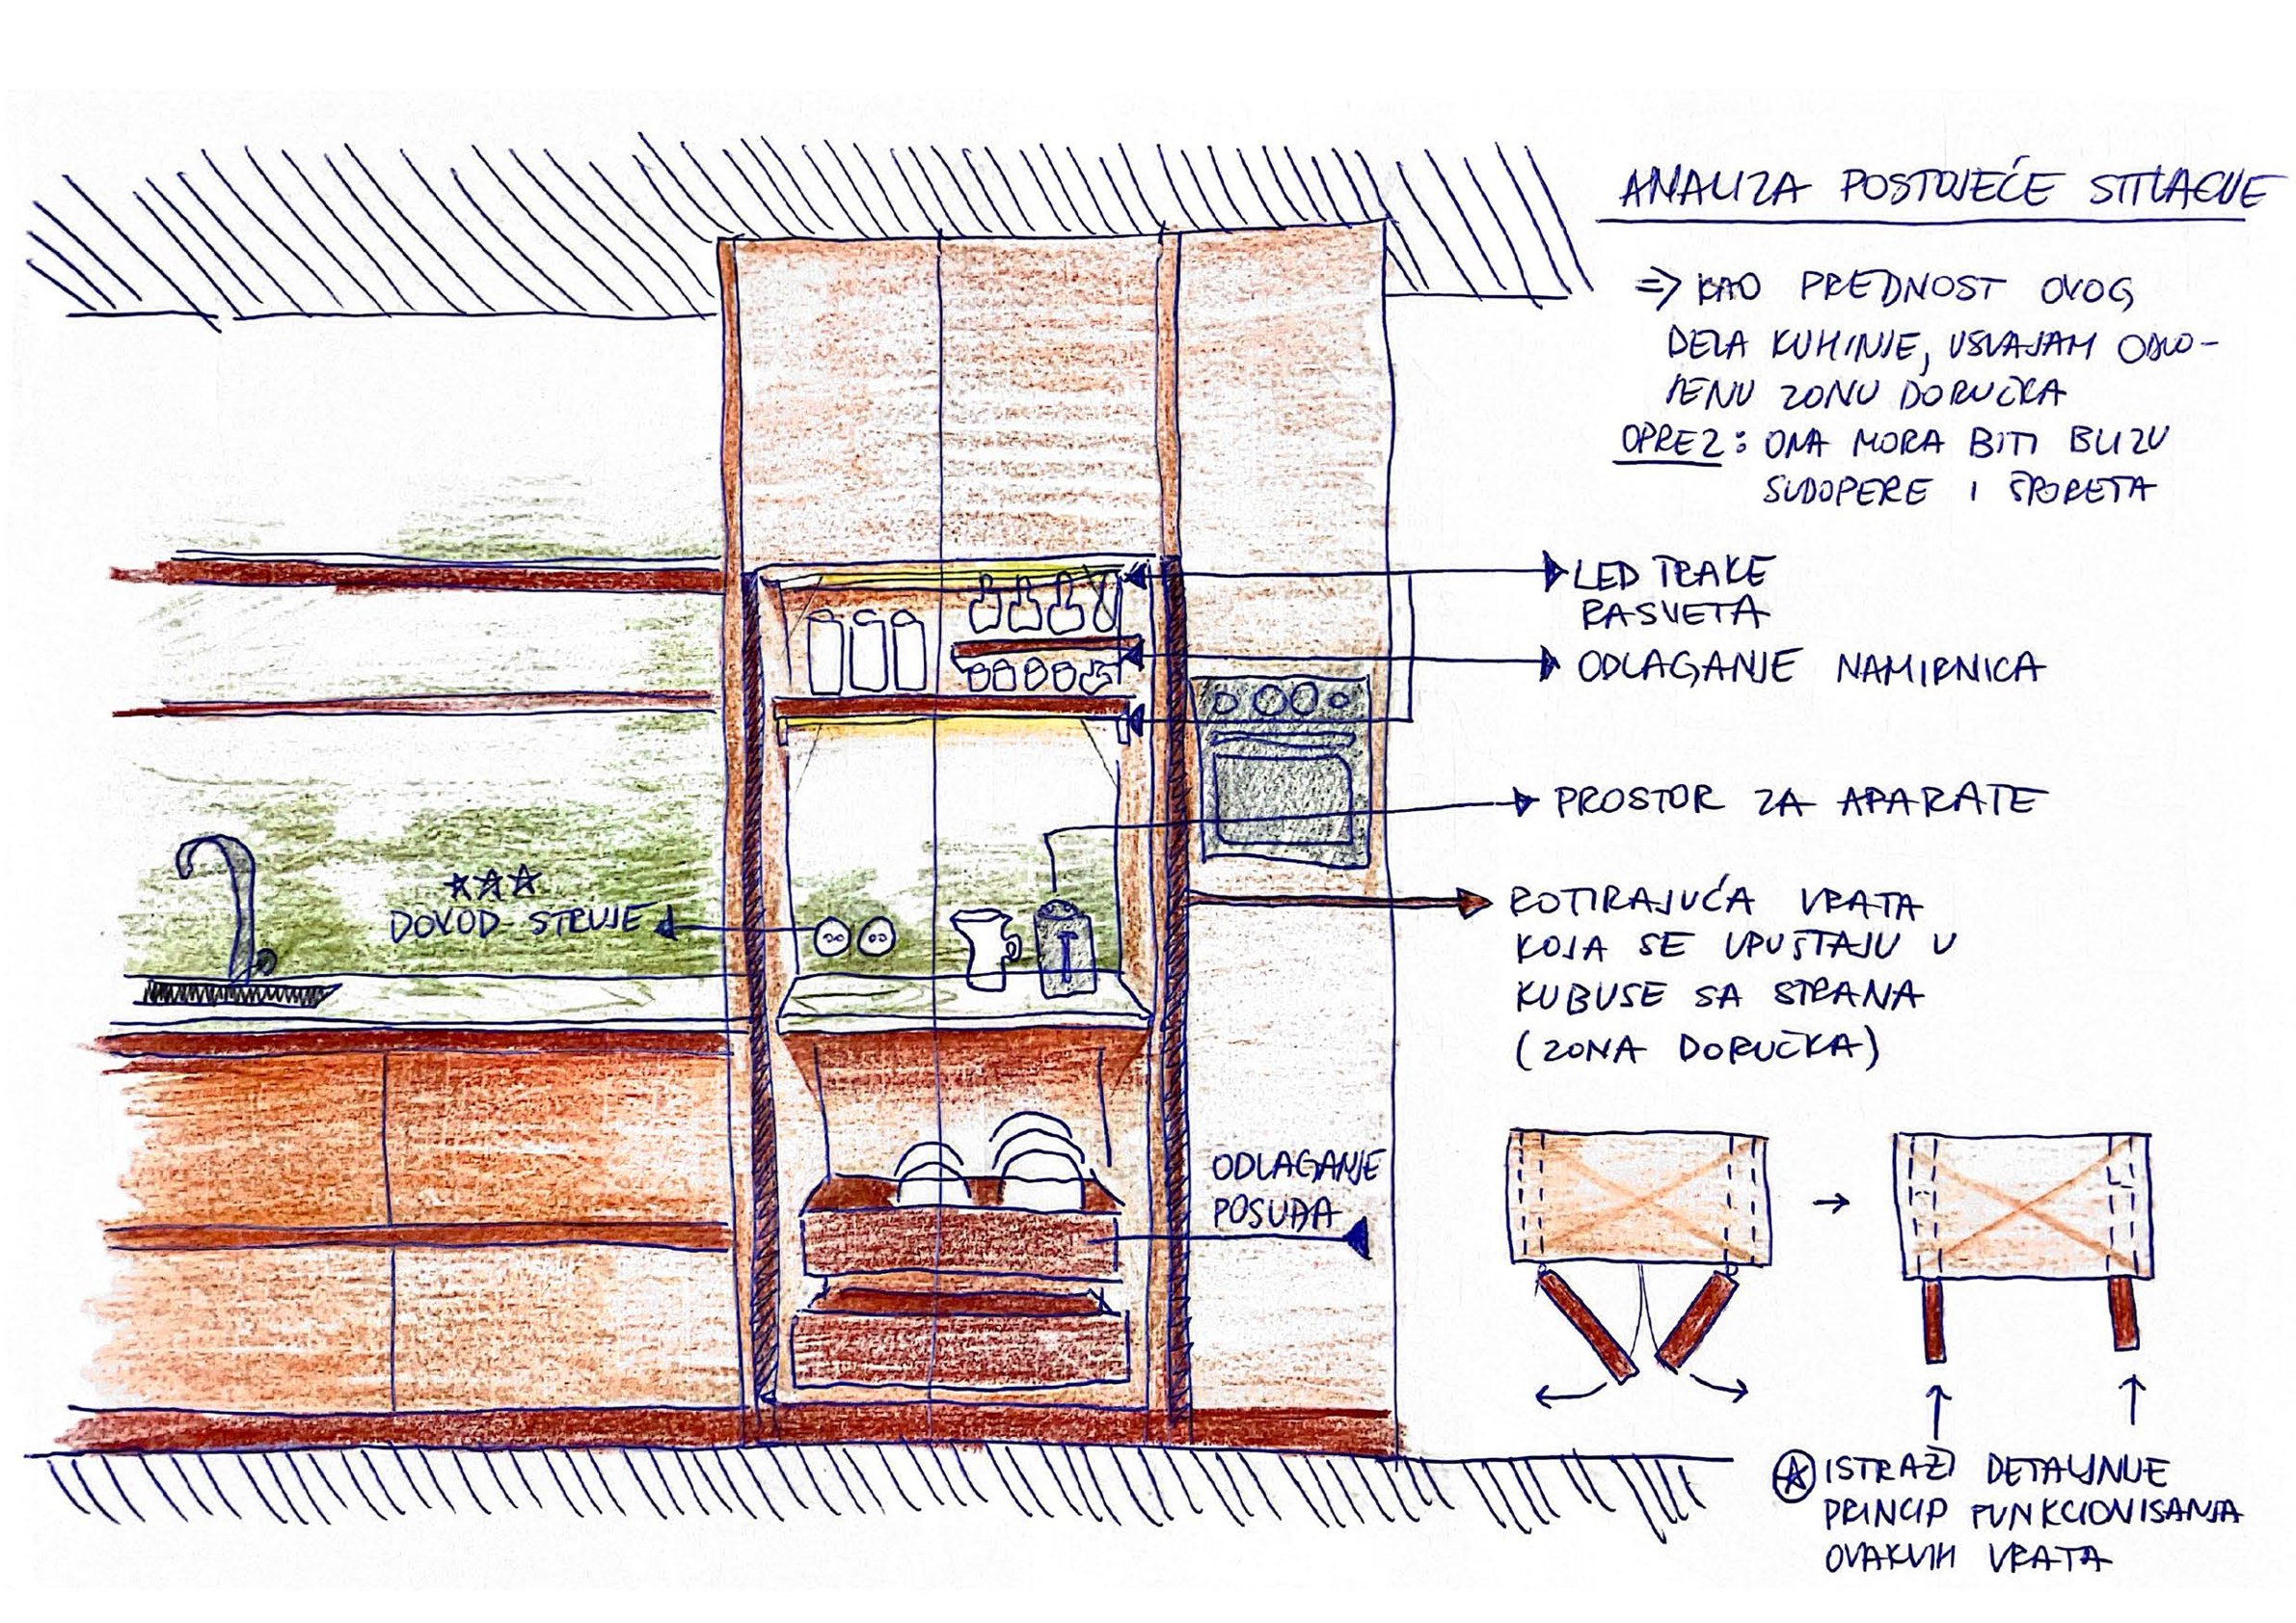 ANALIZA POSTOJEĆE SITUACIJE
=> KAO PREDNOST OVOG
DELA KUHINJE, USVAJAM ODVO-
JENU ZONU DORUČKA
OPREZ: ONA MORA BITI BLIZU
SUDOPERE I ŠPORETA
LED TRAKE
RASVETA
ODLAGANJE NAMIRNICA
PROSTOR ZA APARATE
*** 
DOVOD STRUJE
ROTIRAJUĆA VRATA
KOJA SE UPUŠTAJU U
KUBUSE SA STRANA
(ZONA DORUČKA)
ODLAGANJE
POSUĐA
ISTRAŽI DETALJNIJE
PRINCIP FUNKCIONISANJA
OVAKVIH VRATA